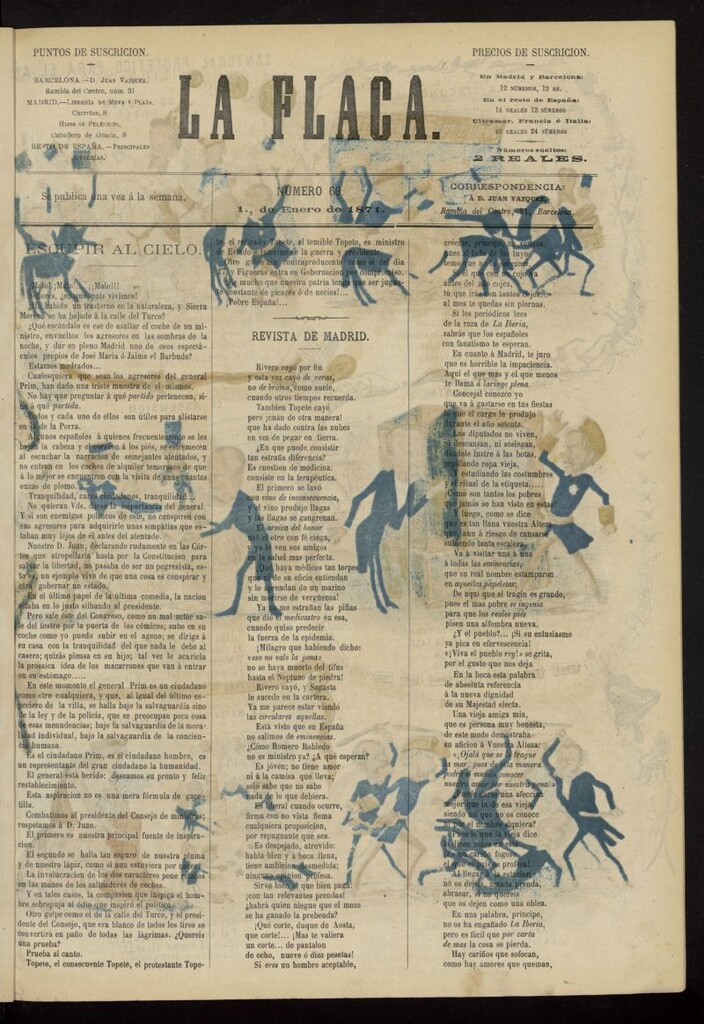 PUNTOS DE SUSCRICION.
BARCELONA.—D. JUAN VAZQUEZ.
Rambla del Centro, núm. 31
MADRID.—LIBRERÍA DE MOYA Y PLAZA,
Carretas, 8
HIJOS DE PELEGRINI,
Caballero de Gracia, 8
RESTO DE ESPAÑA.—PRINCIPALES
LIBRERÍAS.
LA FLACA.
PRECIOS DE SUSCRICION.
En Madrid y Barcelona:
12 NÚMEROS, 12 RS.
En el resto de España:
14 REALES 12 NÚMEROS
Ultramar, Francia é Italia:
40 REALES 24 NÚMEROS
Números sueltos:
2 REALES.
Se publica una vez á la semana.
NÚMERO 69.
1.º de Enero de 1871.
CORRESPONDENCIA:
Á D. JUAN VAZQUEZ,
Rambla del Centro, 31, Barcelona.
ESCUPIR AL CIELO.
¡Malo! ¡¡Malo!!! ¡¡Malo!!!
vivimos?
habido un trastorno en la naturaleza, y Sierra
Morena se ha bajado á la calle del Turco?
¿Qué escándalo es ese de asaltar el coche de un mi-
nistro, envueltos los agresores en las sombras de la
noche, y dar en pleno Madrid uno de esos espectá-
culos propios de José María ó Jaime el Barbudo?
Estamos medrados...
Cualesquiera que sean los agresores del general
Prim, han dado una triste muestra de sí mismos.
No hay que preguntar á qué partido pertenecen, si-
nó á qué partida.
Todos y cada uno de ellos son útiles para alistarse
en la de la Porra.
Algunos españoles á quienes frecuentemente se les
la cabeza y á los piés, se estremecen
al escuchar la narracion de semejantes atentados, y
no entran en los coches de alquiler temerosos de que
á lo mejor se encuentren con la visita de cuantas
onzas de plomo.
Tranquilidad, caros ciudadanos, tranquilidad.
No quieran Vds. la importancia del general.
Y si son enemigos políticos de este, no conspiren con
sus agresores para adquirirle unas simpatías que es-
taban muy léjos de él antes del atentado.
Nuestro D. Juan, declarando rudamente en las Cór-
tes que atropellaría hasta por la Constitucion, para
salvar la libertad, no pasaba de ser un pogresista, es-
to es un ejemplo vivo de que una cosa es conspirar y
otra gobernar un estado.
En el último papel de la última comedia, la nacion
estaba en lo justo silbando al presidente.
Pero sale éste del Congreso, como un mal actor sa-
le del teatro por la puerta de los cómicos; sube en su
coche como yo puedo subir en el ageno; se dirige á
su casa con la tranquilidad del que nada le debe al
casero; quizás piensa en su hijo; tal vez le acaricia
la prosáica idea de los macarrones que van á entrar
en su estómago.....
En este momento el general Prim es un ciudadano
como otro cualquiera, y que, al igual del último es-
peciero de la villa, se halla bajo la salvaguardia sino
de la ley y de la policía, que se preocupan poca cosa
de esas menudencias; bajo la salvaguardia de la mora-
lidad individual, bajo la salvaguardia de la concien-
cia humana.
Es el ciudadano Prim, es el ciudadano hombre, es
un representante del gran ciudadano la humanidad.
El general está herido: deseamos su pronto y feliz
restablecimiento.
Esta aspiracion no es una mera fórmula de gace-
tilla.
Combatimos al presidente del Consejo de ministros;
respetamos á D. Juan.
El primero es nuestra principal fuente de inspira-
cion.
El segundo se halla tan seguro de nuestra pluma
y de nuestro lápiz, como si aun estuviera por nacer.
La involucracion de los dos caractéres pone
en las manos de los salteadores de coches.
Y en tales casos, la compasion que inspira el hom-
bre sobrepuja al ódio que inspiró el político.
Otro golpe como el de la calle del Turco, y el presi-
dente del Consejo, que era blanco de todos los tiros se
convertirá en paño de todas las lágrimas. ¿Quereis
una prueba?
Prueba al canto.
Topete, el consecuente Topete, el protestante Tope-
te, el retirado Topete, el temible Topete, es ministro
de Estado é interino de la guerra y presidente.
Otro golpe contraproducente como el de dia
y Figueras entra en Gobernacion
mucho que nuestra patria tenga de ser juguete
constante de pícaros ó de necios!...
¡Pobre España!...
REVISTA DE MADRID.
Rivero cayó por fin
y esta vez cayó de veras,
no de broma, como suele,
cuando otros tiempos recuerda.
Tambien Topete cayó
pero ¡cuán de otra manera!
que ha dado contra las nubes
en vez de pegar en tierra.
¿En que puede consistir
tan estraña diferencia?
Es cuestion de medicina:
consiste en la terapéutica.
El primero se lavó
con vino de inconsecuencia,
y el vino produjo llagas
y las llagas se gangrenan.
El árnica del honor
el otro con fé ciega,
y en sus amigos
la salud mas perfecta.
¡Que haya médicos tan torpes
que de su oficio entiendan
y lo aprendan de un marino
sin morirse de vergüenza!
Ya se me estrañan las piñas
que dió medicastro en esa,
cuando quiso predecir
la fuerza de la epidemia.
¡Milagro que habiendo dicho:
«eso no vale la pena»
no se haya muerto del tifus
hasta el Neptuno de piedra!
Rivero cayó, y Sagasta
le sucede en la cartera.
Ya me parece estar viendo
las circulares aquellas.
Está visto que en España
no salimos de eminencias.
¿Cómo Romero Robledo
no es ministro ya? ¿A qué esperan?
Es jóven; no tiene amor
ni á la camisa que lleva;
solo sabe que no sabe
nada de lo que debiera.
El general cuando ocurre,
firma con no vista flema
cualquiera proposicion,
por repugnante que sea.
Es despejado, atrevido:
habla bien y á boca llena,
tiene ambicion desmedida;
ninguna profesa.
Sirve bien al que bien paga:
¡con tan relevantes prendas!
¿habrá quien niegue que el mozo
se ha ganado la prebenda?
¡Qué corte, duque de Aosta,
que corte!... ¡Mas te valiera
un corte... de pantalon
de ocho, nueve ó diez pesetas!
Si eres un hombre aceptable,
créeme, príncipe, no vengas,
pues
temo que
antes del
tú que irás en tantos cojera,
al mes te quedas sin piernas.
Si los periódicos lees
de la raza de La Iberia,
sabrás que los españoles
con fanatismo te esperan.
En cuanto á Madrid, te juro
que es horrible la impaciencia.
Aquí el que mas y el que menos
te llama á laringe plena.
Concejal conozco yo
que va á gastarse en tus fiestas
que el cargo le produjo
durante el año setenta.
Los diputados no viven,
ni descansan, ni sosiegan,
dándole lustre á las botas,
cepillando ropa vieja,
estudiando las costumbres
y ritual de la etiqueta.....
Como son tantos los pobres
que jamás se han visto en estas
luego, como se dice
que es tan llana vuestra Alteza
aun á riesgo de cansarse
subiendo tanta escalera.
Va á visitar una á una
á todas las eminencias;
que su real nombre estamparon
en aquellas papeletas:
De aquí que el tragin es grande,
pues el mas pobre se ingenia
para que los reales piés
pisen una alfombra nueva.
¿Y el pueblo?... ¡Si su entusiasmo
ya pica en efervescencia!
«¡Viva el pueblo rey!» se grita,
por el gusto que nos deja
En la boca esta palabra
de absoluta referencia
á la nueva dignidad
de su Majestad electa.
Una vieja amiga mia,
que es persona muy honesta,
de este modo demostraba
su aficion á Vuestra Alteza:
«¡Ojalá que se le trague
la mar, pues de esta manera
podrá el mundo conocer
«Pues lo que la vieja dice
os dejen como una oblea.
En una palabra, príncipe,
no os ha engañado La Iberia,
pero es fácil que por carta
de mas la cosa se pierda.
Hay cariños que sofocan,
como hay amores que queman,